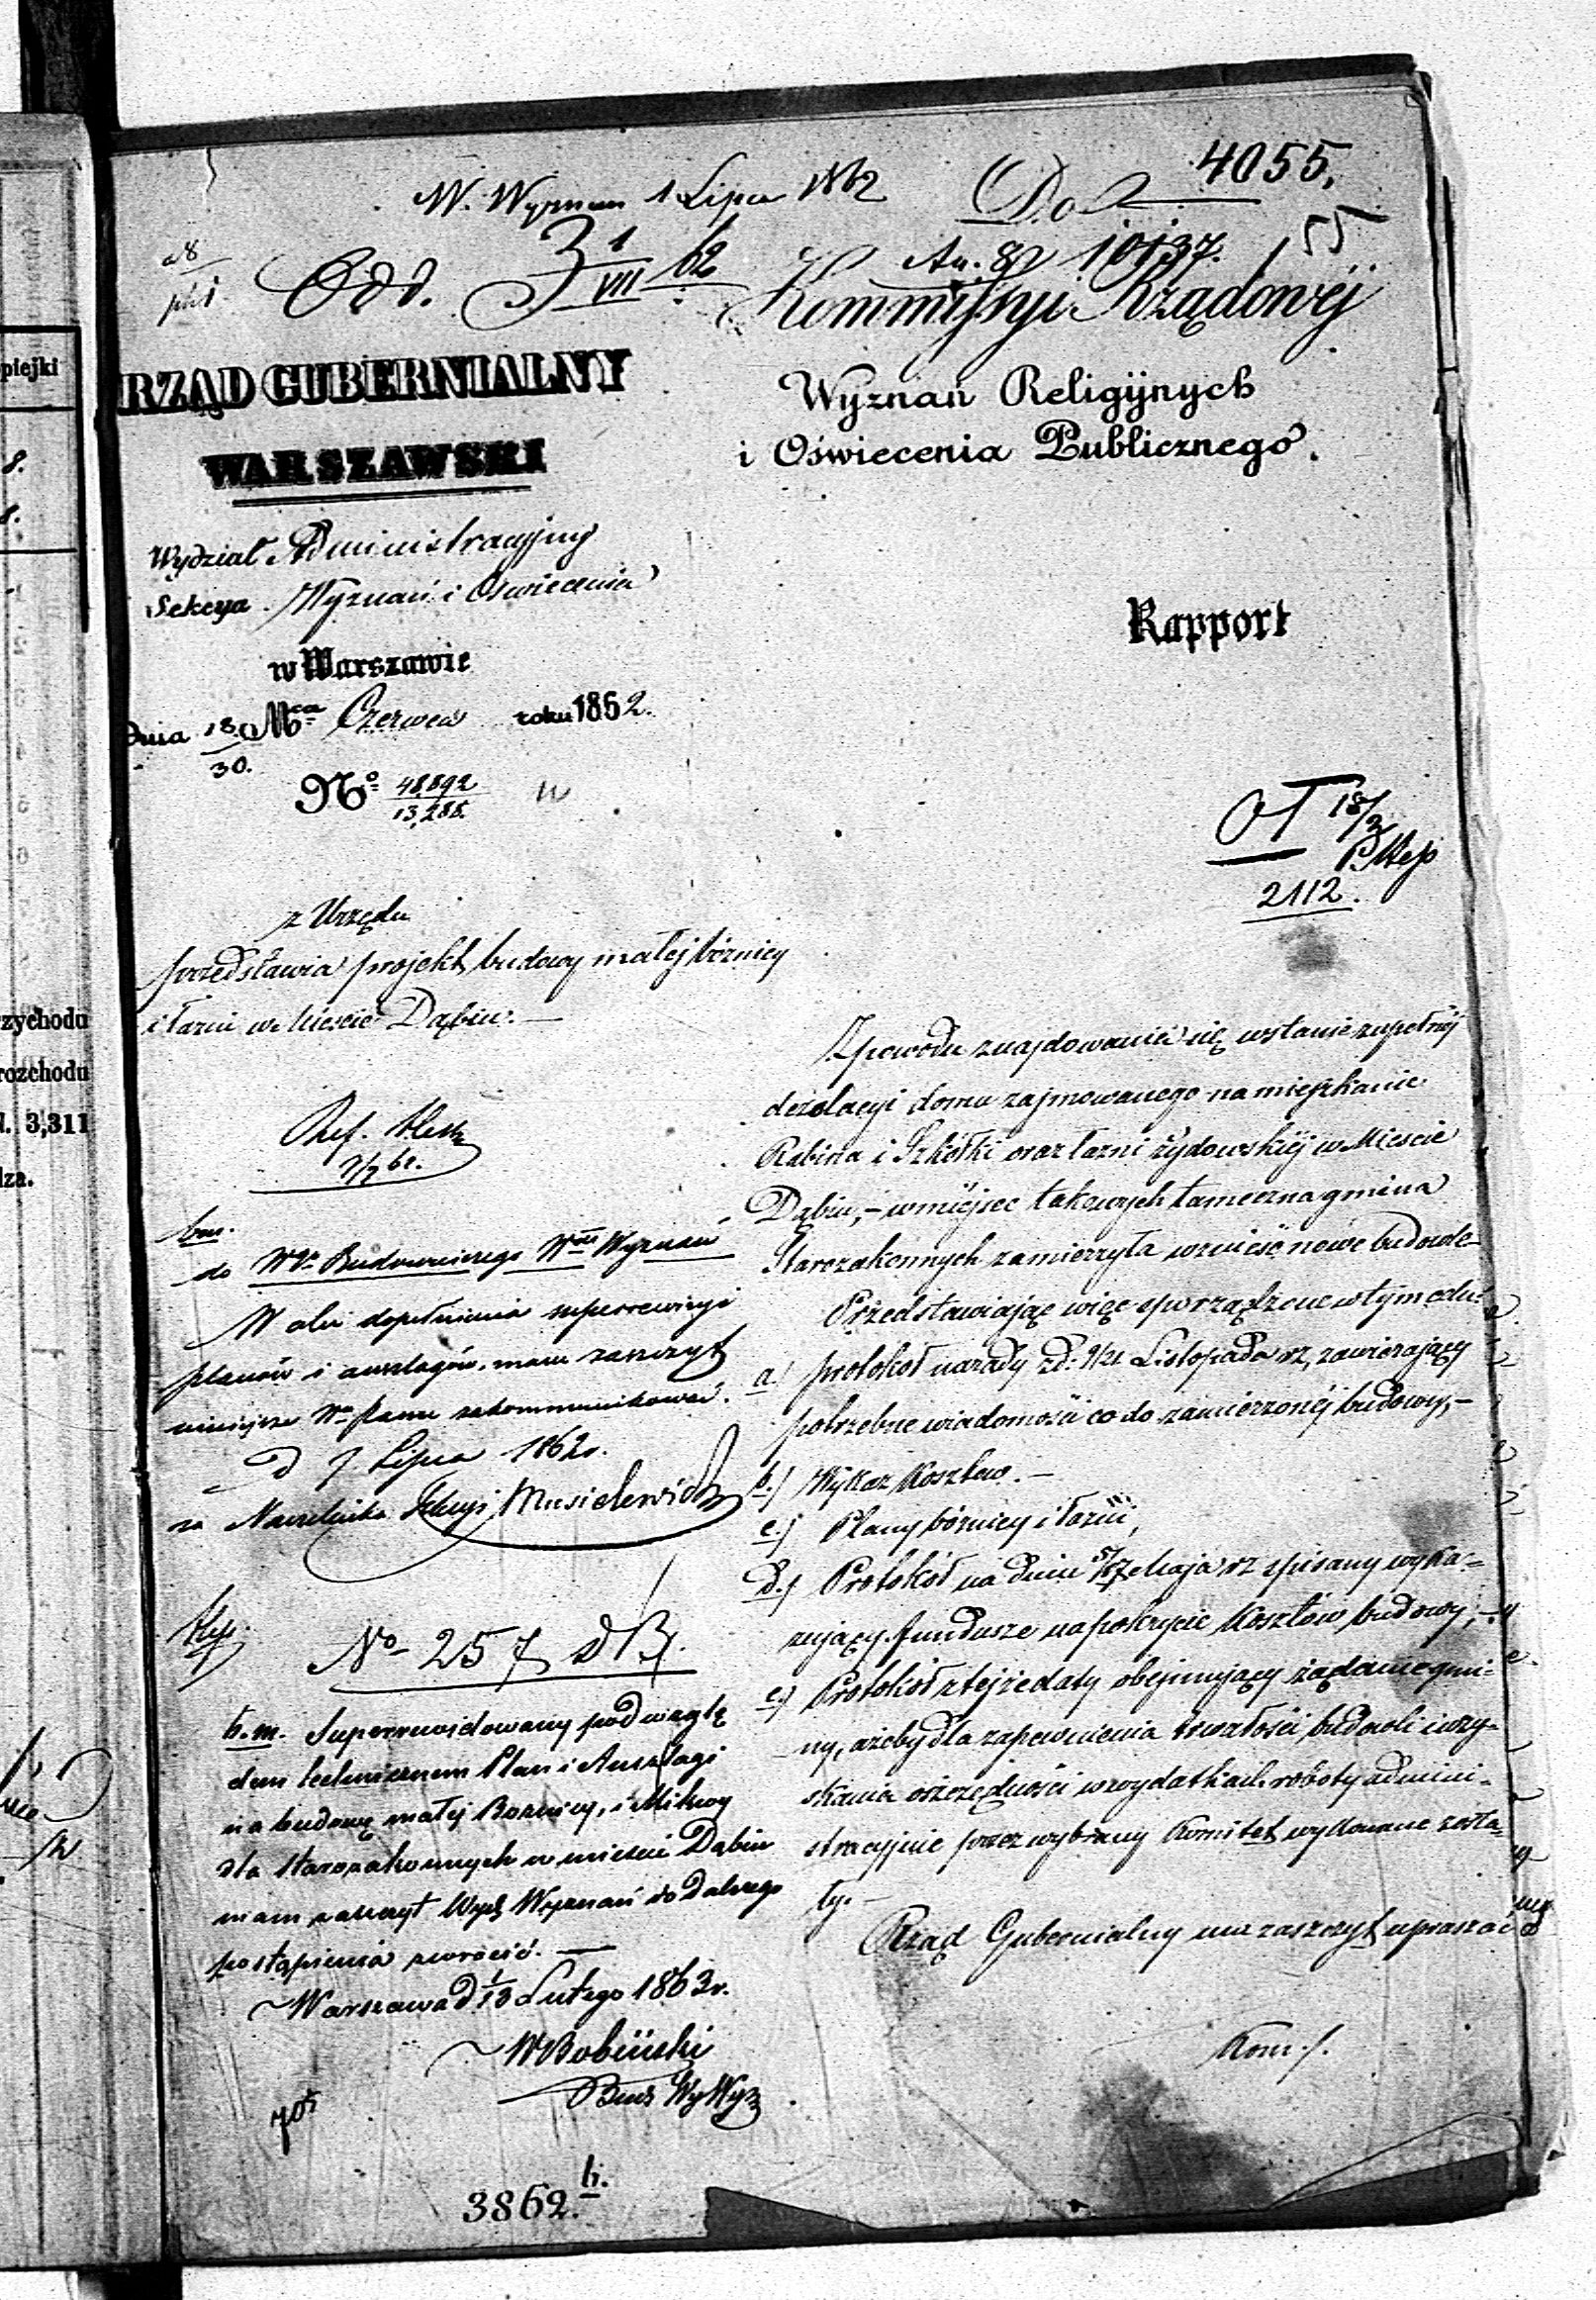 4055.
W. Wyznań 1 Lipca 1862
Do
55
Odd. 3 1/VII 62
10137.
Kommissyi Rządowéj
RZĄD GUBERNIALNY
WARSZAWSKI
Wyznań Religijnych
i Oświecenia Publicznego.
Wydział Administracyjny
Sekcya Wyznań i Oświecenia
w Warszawie
Dnia 18/30 Mca Czerwca roku 1862.
No 48,892/13,288.
Rapport
2112.
z Urzędu
przedstawia projekt budowy małej bóżnicy
i łazni w Mieście Dąbiu. —
Z powodu znajdowania się w stanie zupełnéj
dezolacyi domu zajmowanego na mieszkanie
Rabina i Szkółki oraz łazni żydowskiéj w Mieście
Dąbiu, – w miejsce takowych tameczna gmina
Starozakonnych zamierzyła wznieść nowe budowle
Przedstawiając więc sporządzone w tym celu:
a.) protokół narady z d: 9/21 Listopada rz, zawierający
potrzebne wiadomości co do zamierzonéj budowy, –
b.) Wykaz Kosztów. —
c.) Plany bóżnicy i łazni,
d.) Protokół na dniu 5/17 Maja rz spisany wyka-
zujący fundusze na pokrycie Kosztów budowy, –
e.) Protokół z tejże daty obejmujący żądanie gmi-
ny, ażeby dla zapewnienia trwałości budowli i uzy-
skania oszczędności w wydatkach roboty admini-
stracyjnie przez wybrany Komitet wykonane zosta-
ły. –
Rząd Gubernialny ma zaszczyt upraszać
Kom. /.
Ref.
do Wgo Budowniczego Włu Wyznań
W celu dopełnienia superrewizyi
planów i anszlagów, mam zaszczyt
niniejsze Wu Panu zakommunikować.
D 7 Lipca 1862r.
za Naczelnika Sekcyi Musielewicz
No 257 d B.
b.m. Superrewidowany pod wzglę
dem technicznem Plan i Anszlagi
na budowę małej Boznicy, i Mikwy
dla Starozakonnych w mieście Dąbiu
mam zaszczyt Wyd. Wyznań do dalszego
postąpienia zwrócić. —
Warszawa d 1/13 Lutego 1863r.
WBobiński
Bud Wy Wyz
705
3862. b.
piejki
8.
8.
rzychodu
rozchodu
3,311
dza.